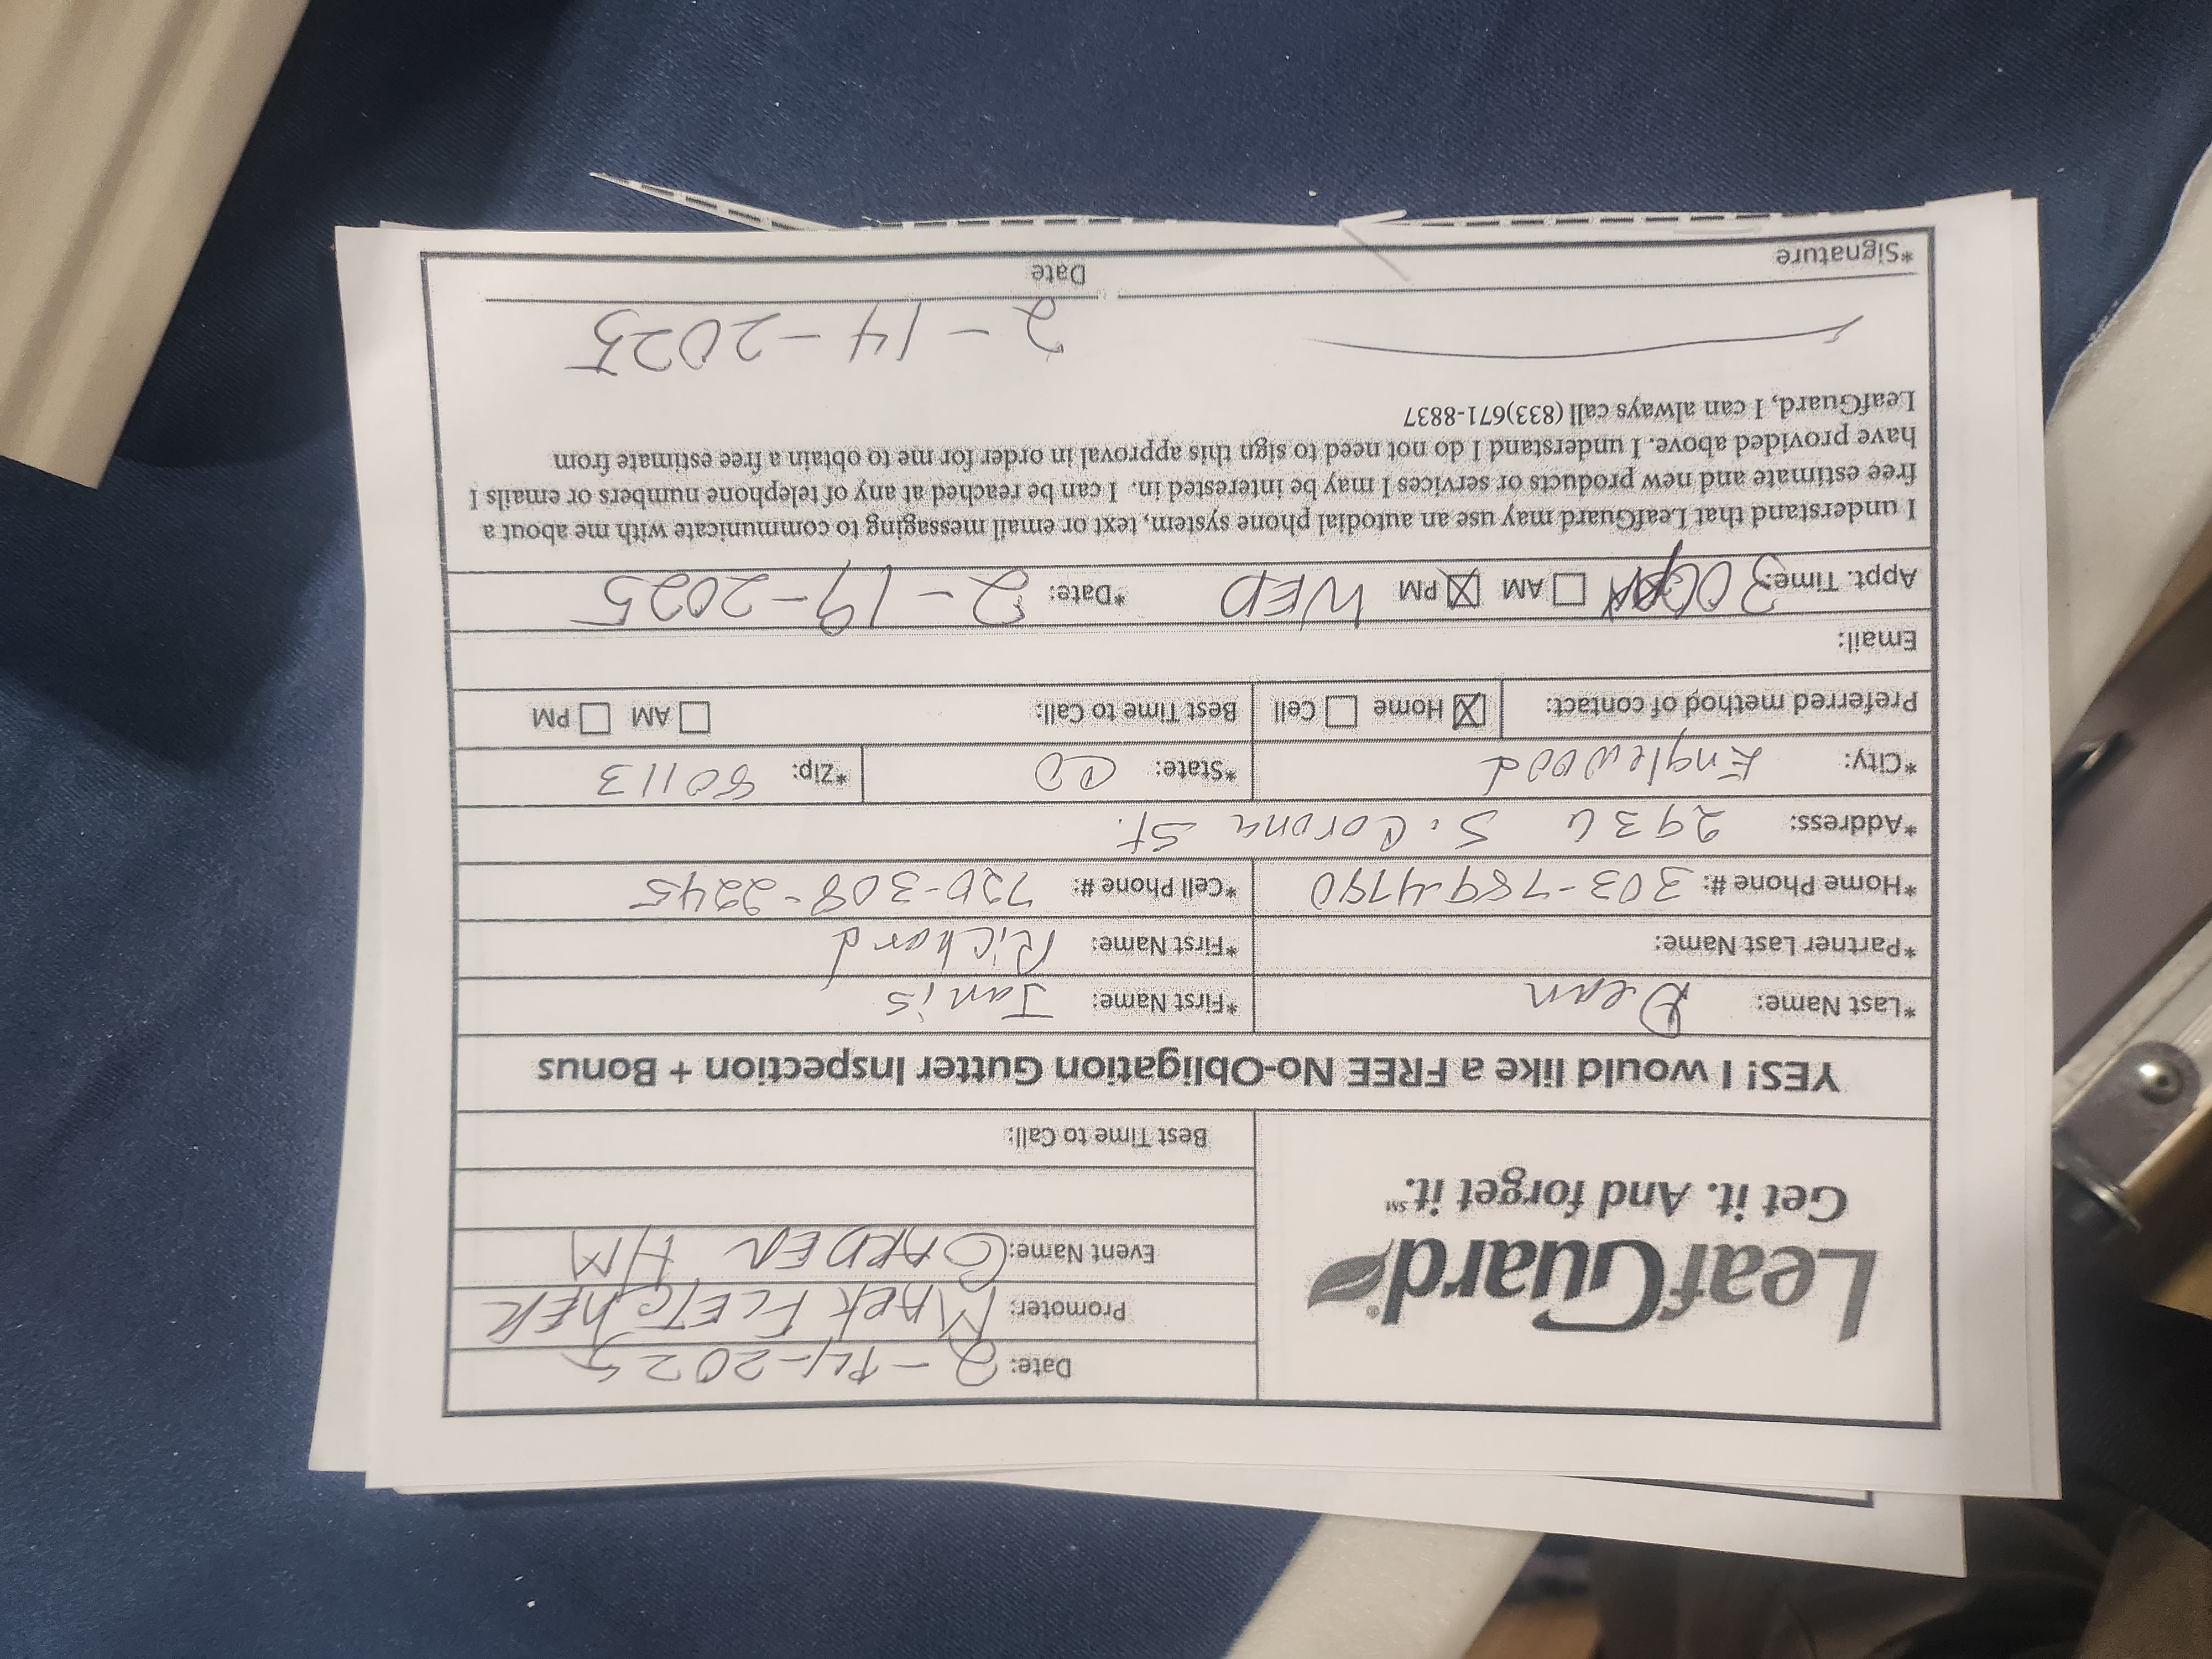 LeafGuard®
Get it. And forget it.℠
Date: 2-14-2025
Promoter: MARK FLETCHER
Event Name: GARDEN HM
Best Time to Call:
YES! I would like a FREE No-Obligation Gutter Inspection + Bonus
*Last Name: Dean *First Name: Janis
*Partner Last Name: *First Name: Richard
*Home Phone #: 303-789-4790 *Cell Phone #: 720-308-2245
*Address: 2936 S. Corona St.
*City: Englewood *State: CO *Zip: 80113
Preferred method of contact: ☒ Home ☐ Cell Best Time to Call: ☐ AM ☐ PM
Email:
Appt. Time: 300 ☐ AM ☒ PM WED *Date: 2-19-2025
I understand that LeafGuard may use an autodial phone system, text or email messaging to communicate with me about a
free estimate and new products or services I may be interested in. I can be reached at any of telephone numbers or emails I
have provided above. I understand I do not need to sign this approval in order for me to obtain a free estimate from
LeafGuard, I can always call (833)671-8837
2-14-2025
*Signature Date